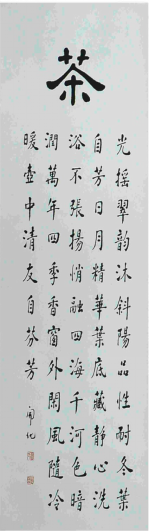 茶
光摇翠韵沐斜陽品性耐冬葉
自芳日月精華葉底藏靜心洗
浴不張揚悄融四海千河色暗
潤萬年四季香窗外閑風隨冷
暖壺中清友自芬芳